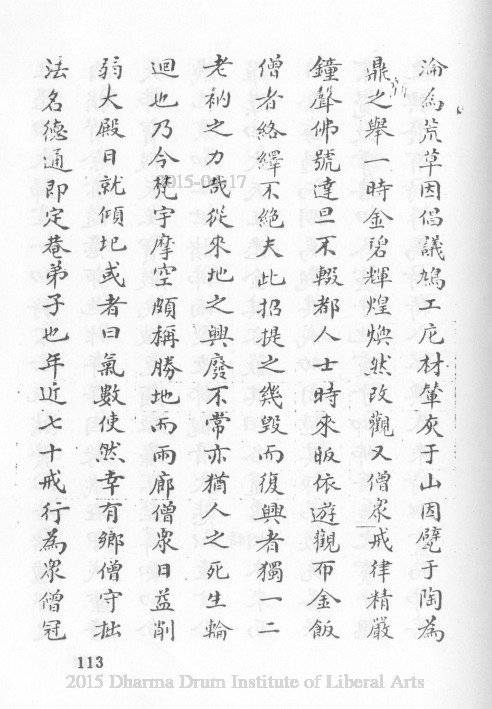 淪為荒草因倡議鳩工庀材葷灰于山因甓于陶為
鼎之舉一時金碧輝煌煥然改觀又僧眾戒律精嚴
鐘聲佛號達旦不輟都人士時來皈依遊觀布金飯
僧者絡繹不絕夫此招提之幾毀而復興者獨一二
老衲之力哉從來地之興廢不常亦猶人之死生輪
迴也乃今梵宇摩空頗稱勝地而兩廊僧眾日益削
弱大殿日就傾圮或者曰氣數使然幸有鄉僧守拙
法名德通即定菴弟子也年近七十戒行為眾僧冠
113
2015-04-17
2015 Dharma Drum Institute of Liberal Arts